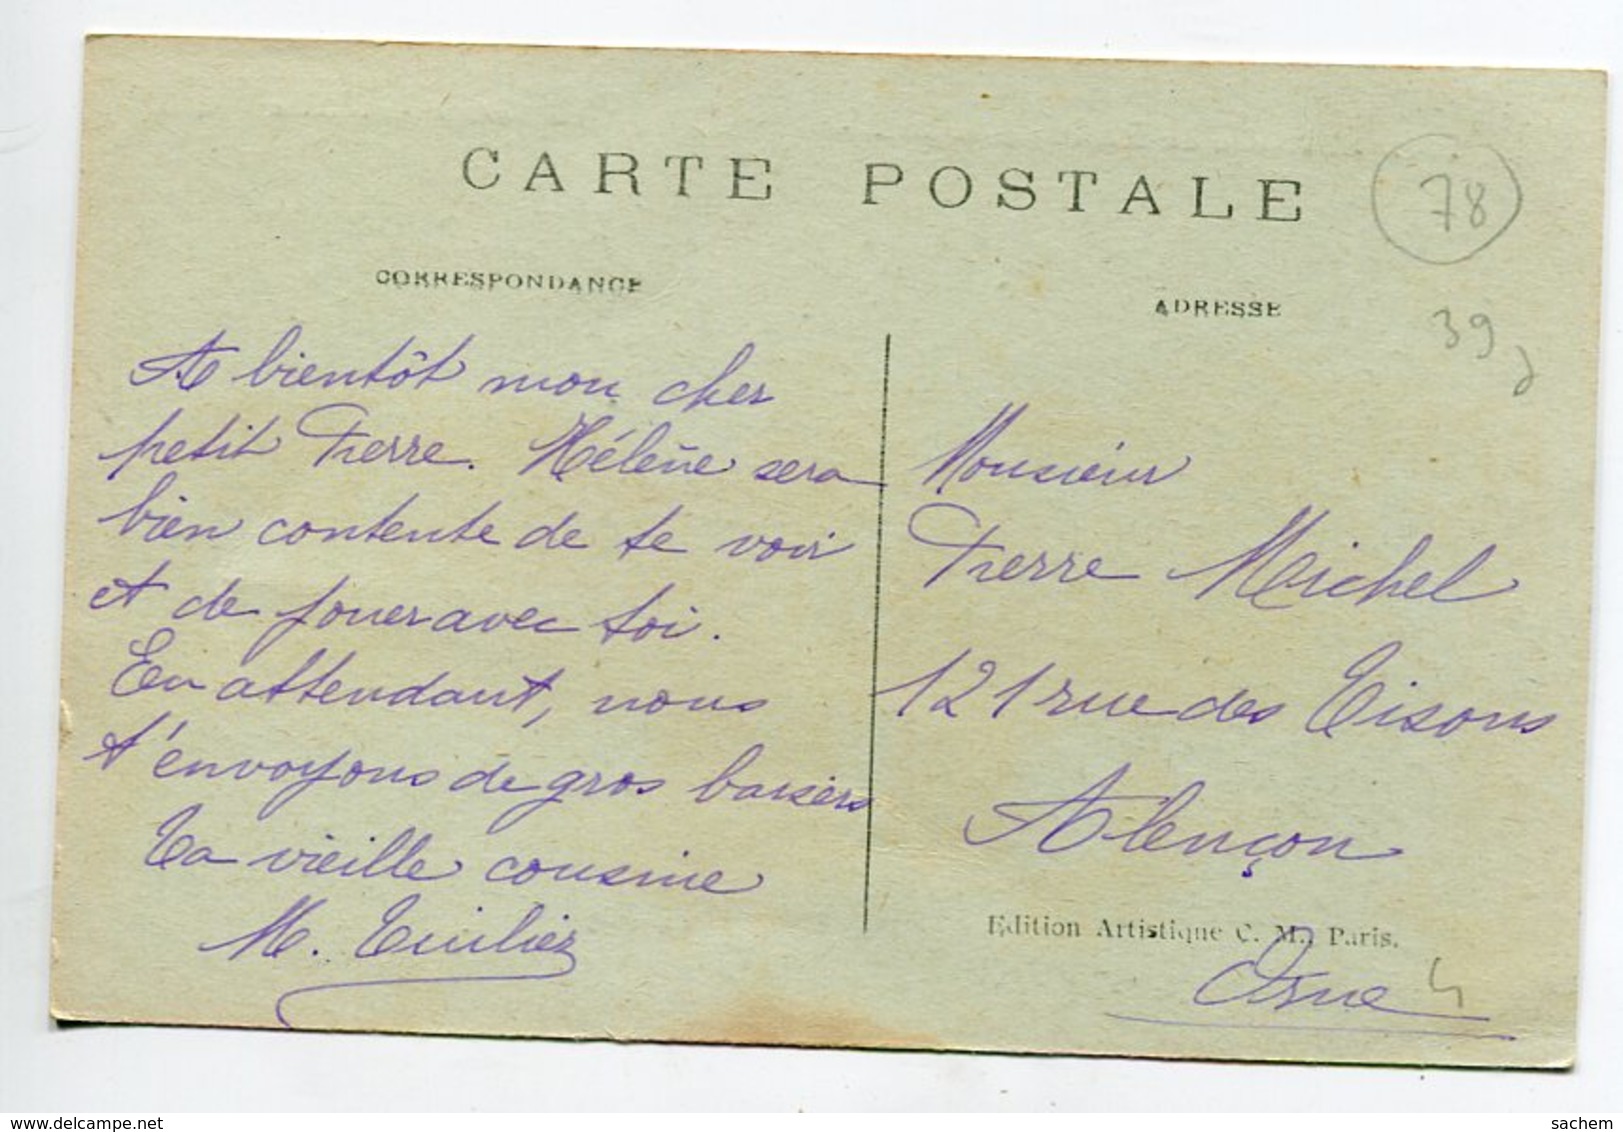 CARTE POSTALE
78
CORRESPONDANCE
ADRESSE
39
A bientôt mon cher
petit Pierre. Hélène sera
bien contente de te voir
et de jouer avec toi.
En attendant, nous
t'envoyons de gros baisers
Ta vieille cousine
M. Tuilier
Monsieur
Pierre Michel
121 rue des Tisons
Alençon
Edition Artistique C. M., Paris.
Orne
delcampe.net
sachem